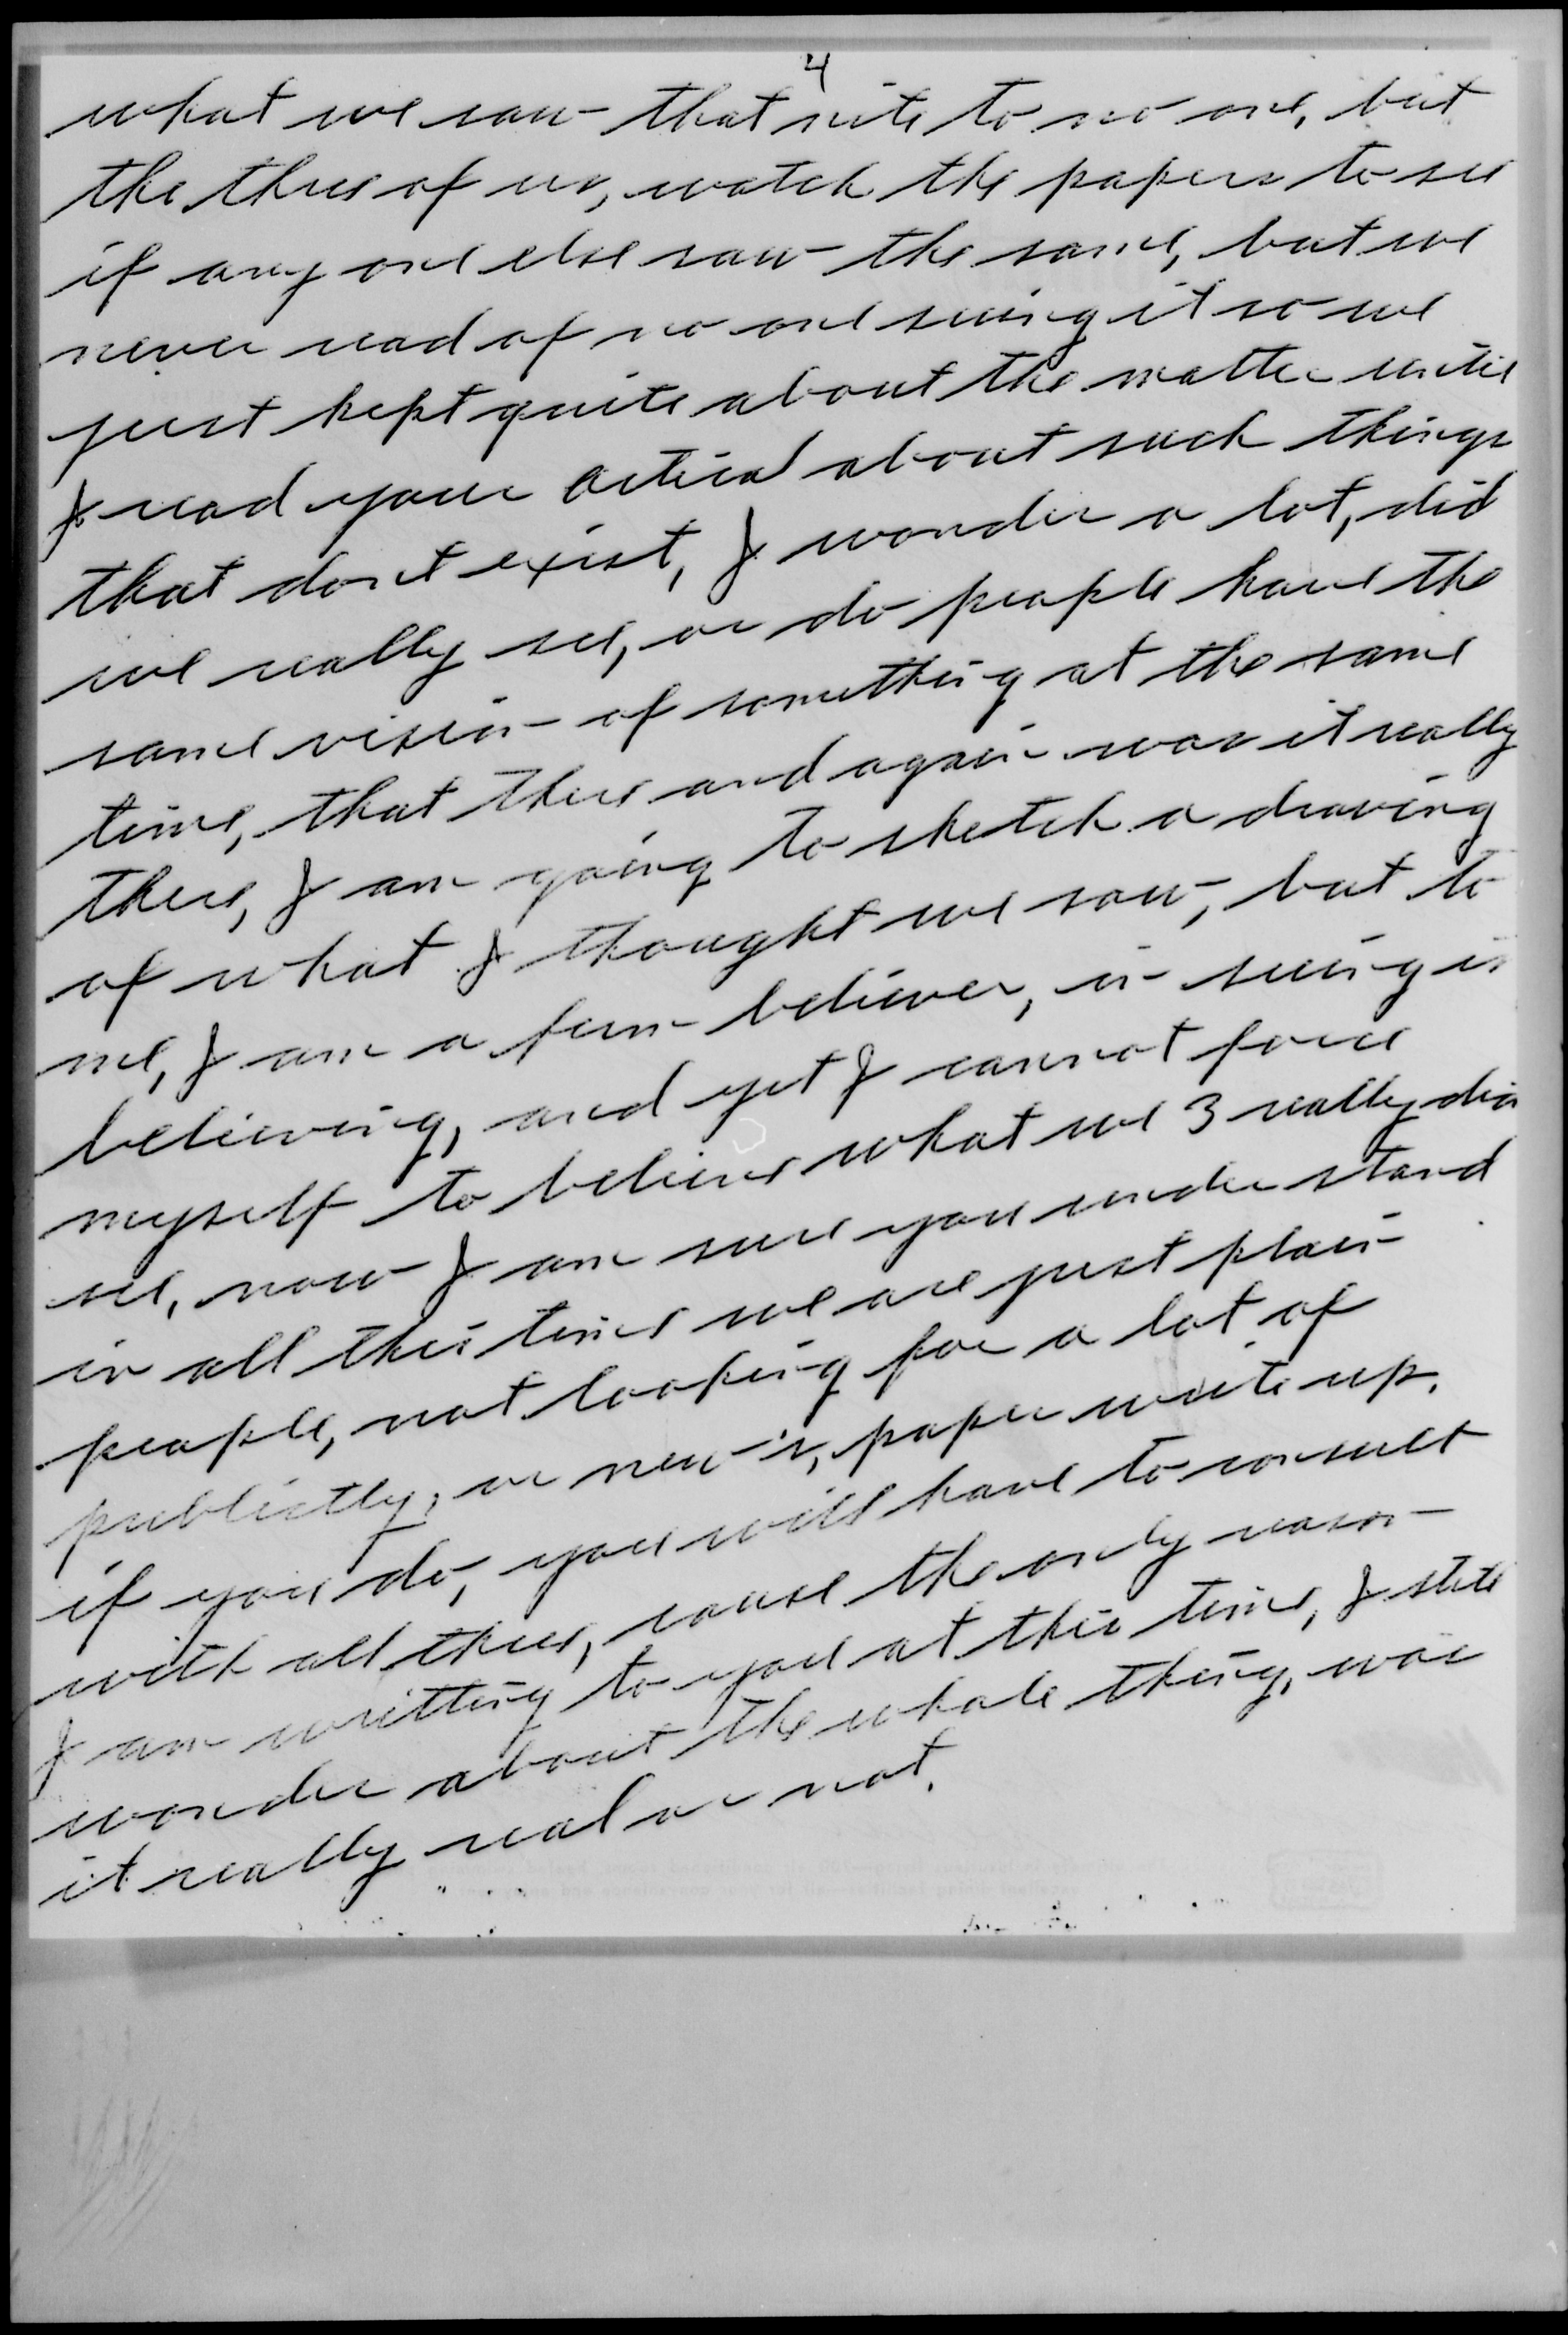 4
what we saw that nite to no one, but
the three of us, watch the papers to see
if any one else saw the same, but we
never read of no one seeing it so we
just kept quite about the matter until
I read your artical about such things
that dont exist, I wonder a lot, did
we really see, or do people have the
same vision of something at the same
time, that there and again was it really
there, I am going to sketch a drawing
of what I thought we saw, but to
me, I am a firm believer, in seeing is
believing, and yet I cannot force
myself to believe what we 3 really did
see, now I am sure you under stand
in all this time we are just plain
people, not looking for a lot of
publictly, or new's, paper write up.
if you do, you will have to consult
with all three, cause the only reason
I am writting to you at this time, I still
wonder about the whole thing, was
it really real or not.